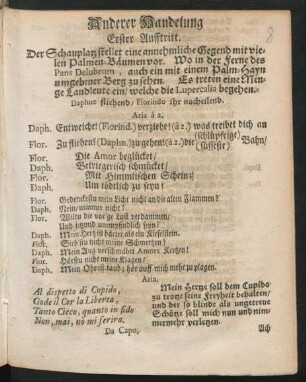 8
Anderer Handelung
Erster Aufftritt.
Der Schauplatz stellet eine annehmliche Gegend mit vie-
len Palmen-Bäumen vor. Wo in der Ferne des
Pans Delubrum, auch ein mit einem Palm-Hayn
umgebener Berg zu sehen. Es treten eine Men-
ge Landleute ein, welche die Lupercalia begehen.
Daphne fliehend/ Florindo ihr nacheilend.
Aria à 2.
Daph. Entweiche! (Florind.) verziehe! (à 2.) was treibet dich an
Flor. Zu fliehen! (Daphn.) zu gehen! (à 2.) die (schlüpfrige (süsseste) Bahn/
Flor. Die Amor beglücket/
Daph. Betriegerisch schmücket/
Flor. Mit Himmlischen Schein;
Daph. Um tödtlich zu seyn!
Flor. Gedenckstu mein Licht nicht an die alten Flammen?
Daph. Nein/ nimmer nicht!
Flor. Wilstu die vor'ge Lust verdammen/
Und itzund unempfindlich seyn?
Daph. Mein Hertz ist härter als ein Kieselstein.
Flor. Siehstu nicht meine Schmertzen?
Daph. Mein Aug verschmähet Amors Kertzen!
Flor. Hörstu nicht meine Klagen/
Daph. Mein Ohr ist taub; hör auff mich mehr zu plagen.
Aria.
Al dispetto di Cupido,
Gode il Cor la Liberta,
Tanto Cieco, quanto in fido
Non, mai, nò mi ferira.
Da Capo.
Mein Hertze soll dem Cupido
zu trotze seine Freyheit behalten/
und der so blinde als ungetreue
Schütze soll mich nun und nim-
mermehr verletzen.
Ach